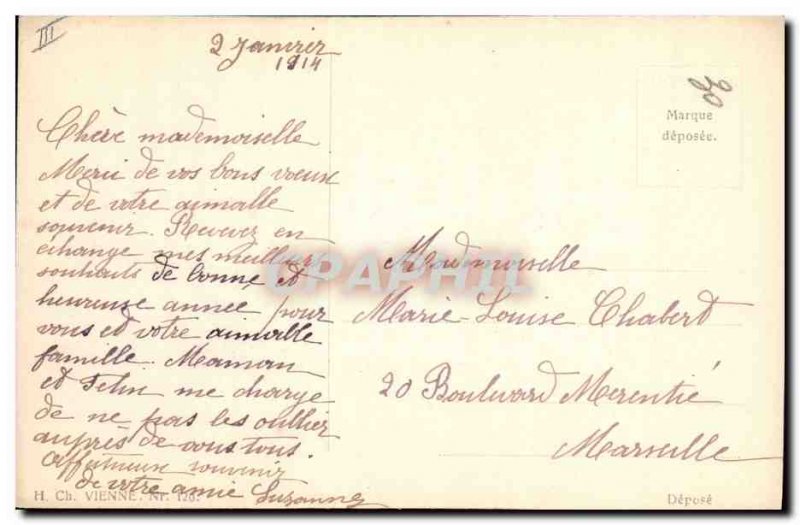 III
2 Janvier
1914
Chère mademoiselle
Merci de vos bons voeux
et de votre aimable
souvenir. Recevez en
échange mes meilleurs
souhaits de bonne et
heureuse année pour
vous et votre aimable
famille. Maman
et me charge
de ne pas les oublier
auprès de vous tous.
Affectueux souvenir
de votre amie Suzanne
H. Ch. VIENNE. Nr. 120.
Marque
déposée.
CPAPHIL
Mademoiselle
Marie-Louise Chabert
20 Boulevard Merentié
Marseille
Déposé